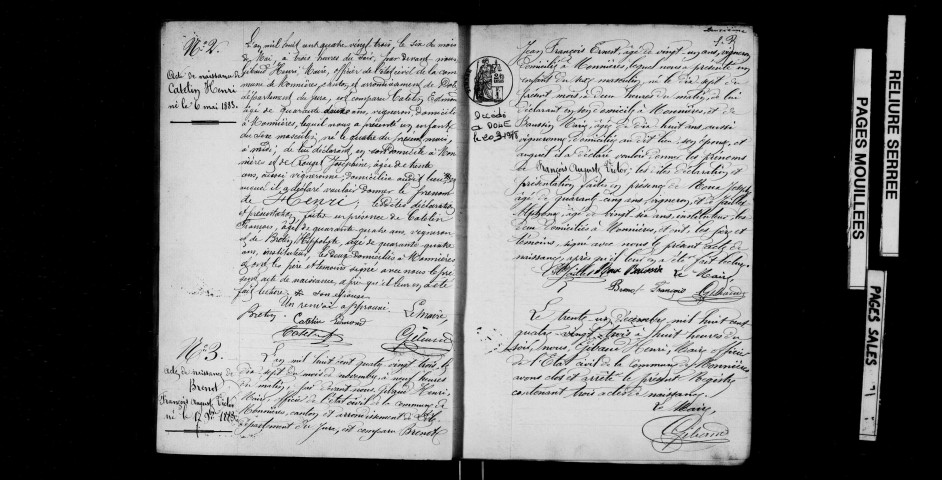 N° 2.
Acte de naissance de
Catelin Henri
né le 6 mai 1883.
L'an mil huit cent quatre vingt trois, le six du mois
de Mai, à trois heures du soir, par devant nous
Gibaud Henri Maire, officier de l'état civil de la com
mune de Monnières, canton et arrondissement de Dole
département du Jura, est comparu Catelin Edmond
âgé de quarante deux ans, vigneron, domicilié
à Monnières, lequel nous a présenté un enfant
du sexe masculin, né le quatre du présent mois,
à midi; de lui déclarant, en son domicile à Mon
nières et de Joséphine, âgée de trente
ans, aussi vigneronne, domiciliée audit lieu
auquel il a déclaré vouloir donner le prénom
de Henri; lesdites déclaration
et présentation, faites en présence de Catelin
François, âgé de quarante quatre ans, vigneron
et de Bretin Hippolyte, âgé de quarante quatre
ans, instituteur, les deux domiciliés à Monnières
et ont les père et témoins signé avec nous le pré
sent acte de naissance, après qu'il leur en a été
fait lecture. son épouse.
Un renvoi approuvé. Le Maire,
Bretin Catelin Edmond
Catelin Gibaud
N° 3.
Acte de naissance de
Brenot
François Auguste Victor
né le 17 9bre 1883
L'an mil huit cent quatre vingt trois, le
dix sept du mois de novembre, à neuf heures
du matin, par devant nous, Gibaud Henri,
Maire, officier de l'état civil de la commune de
Monnières, canton et arrondissement de Dole
département du Jura, est comparu Brenot
Jean François Ernest, âgé de vingt ans, vigneron
domicilié à Monnières, lequel nous a présenté un
enfant du sexe masculin, né le dix sept du
présent mois à deux heures du matin, de lui
déclarant en son domicile à Monnières et de
Marie, âgée de dix huit ans aussi
vigneronne, domiciliée au dit lieu, son épouse, et
auquel il a déclaré vouloir donner les prénoms
de François Auguste Victor; lesdites déclaration et
présentation faites en présence de Joseph
âgé de quarante cinq ans, vigneron, et de
Alphonse, âgé de vingt six ans, instituteur, les
deux domiciliés à Monnières, et ont, les père et
témoins, signé avec nous le présent acte de
naissance, après qu'il leur en a été fait lecture.
Le Maire
Brenot François Gibaud
Décédé
à DOLE
le 20-3-1975
Le trente un décembre mil huit cent
quatre-vingt trois à huit heures du
soir, nous, Gibaud Henri, Maire officier
de l'Etat civil de la commune de Monnières
avons clos et arrêté le présent Registre
contenant trois actes de naissance.
Le Maire,
Gibaud
RELIURE SERREE
PAGES MOUILLEES
PAGES SALES